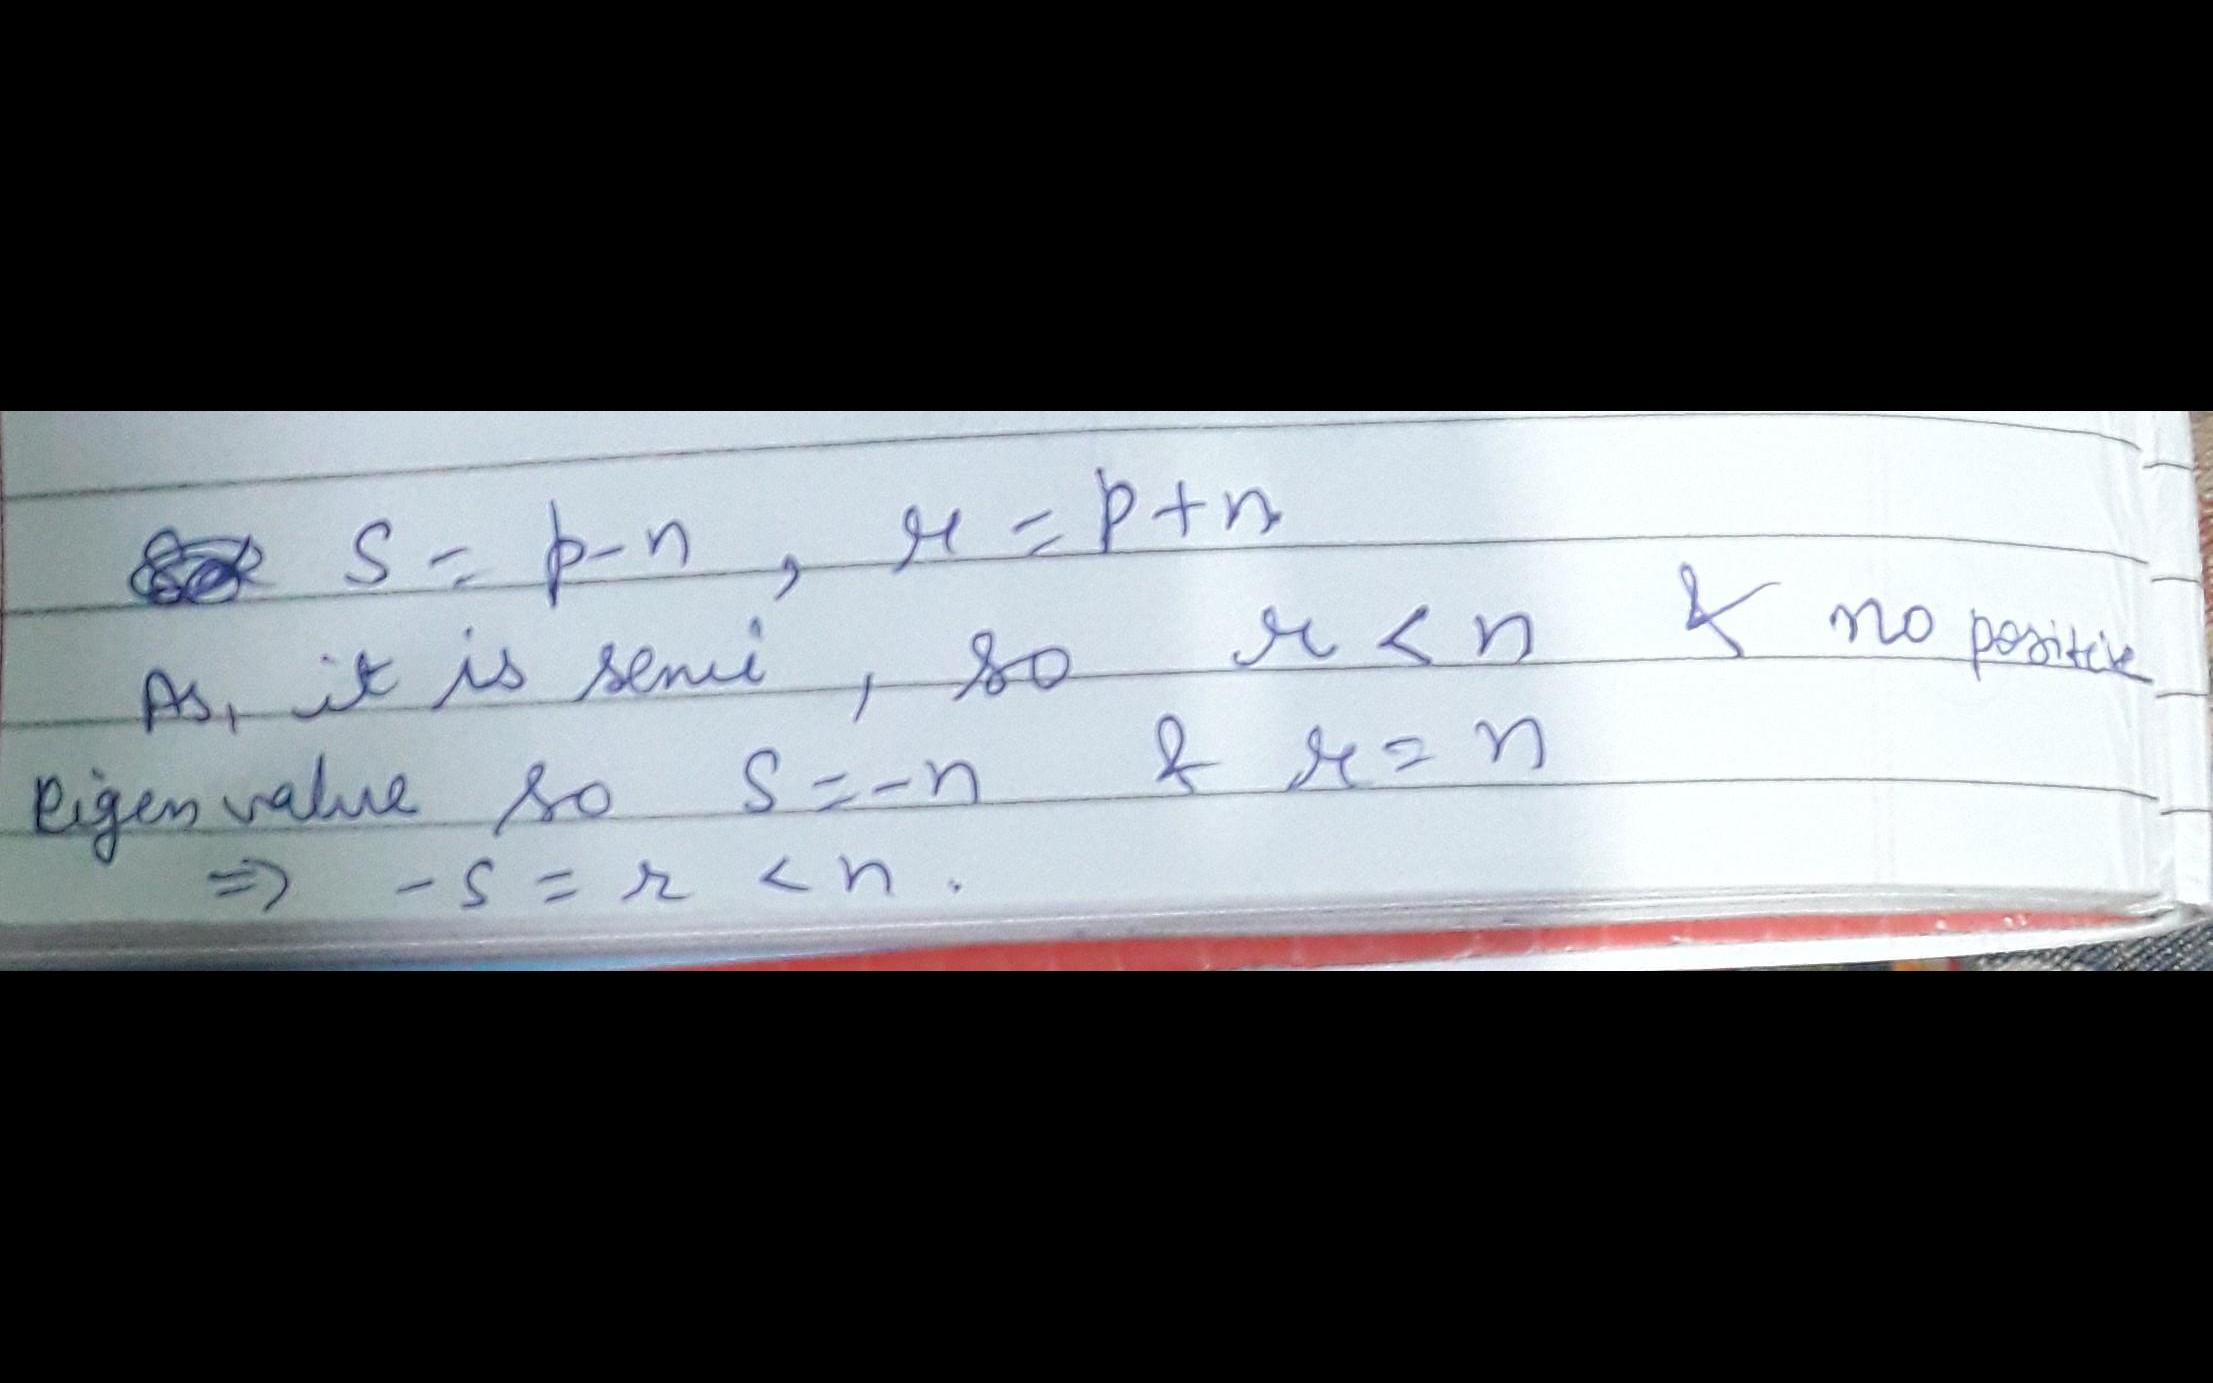 S = p-n , r = p+n
As, it is semi , so r < n & no positive
Eigen value so S = -n & r = n
=> -s = r < n .